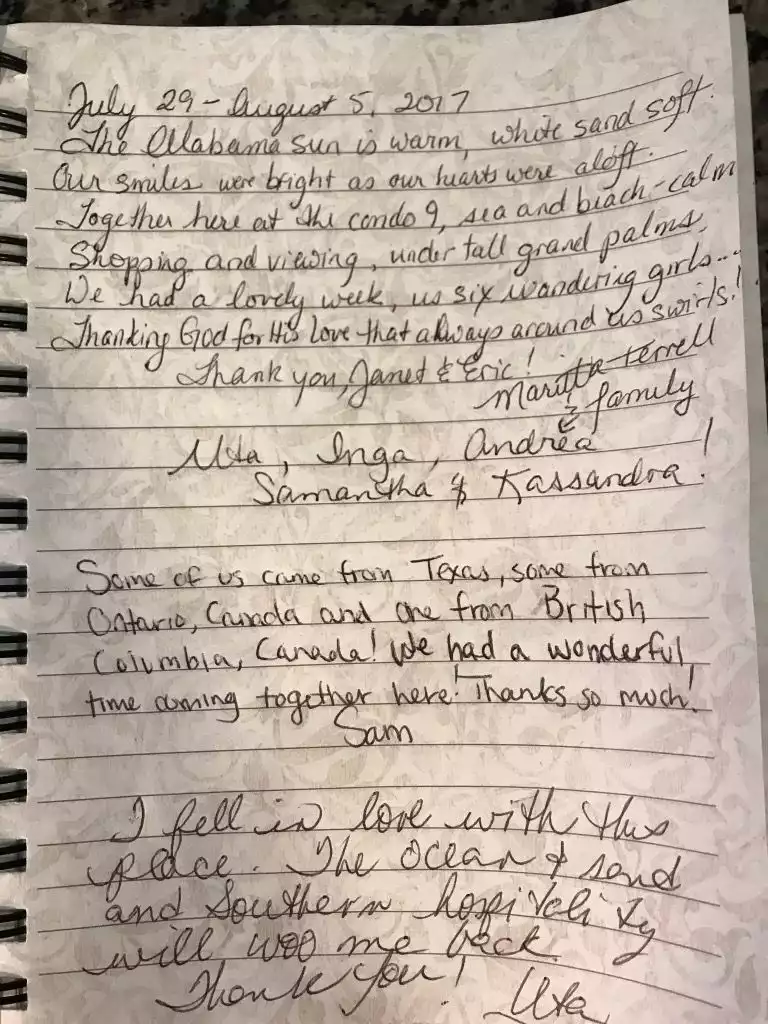 July 29 - August 5, 2017
The Alabama sun is warm, white sand soft.
Our smiles were bright as our hearts were aloft.
Together here at the condo 9, sea and beach-calm
Shopping and viewing, under tall grand palms,
We had a lovely week, us six wandering girls...
Thanking God for His love that always around us swirls!
Thank you, Janet & Eric!
Maritta Terrell
& family
Uta, Inga, Andrea
Samantha & Kassandra!
Some of us came from Texas, some from
Ontario, Canada and one from British
Columbia, Canada! We had a wonderful
time coming together here! Thanks so much!
Sam
I fell in love with this
place. The ocean & sand
and Southern hospitality
will woo me back.
Thank you! Uta